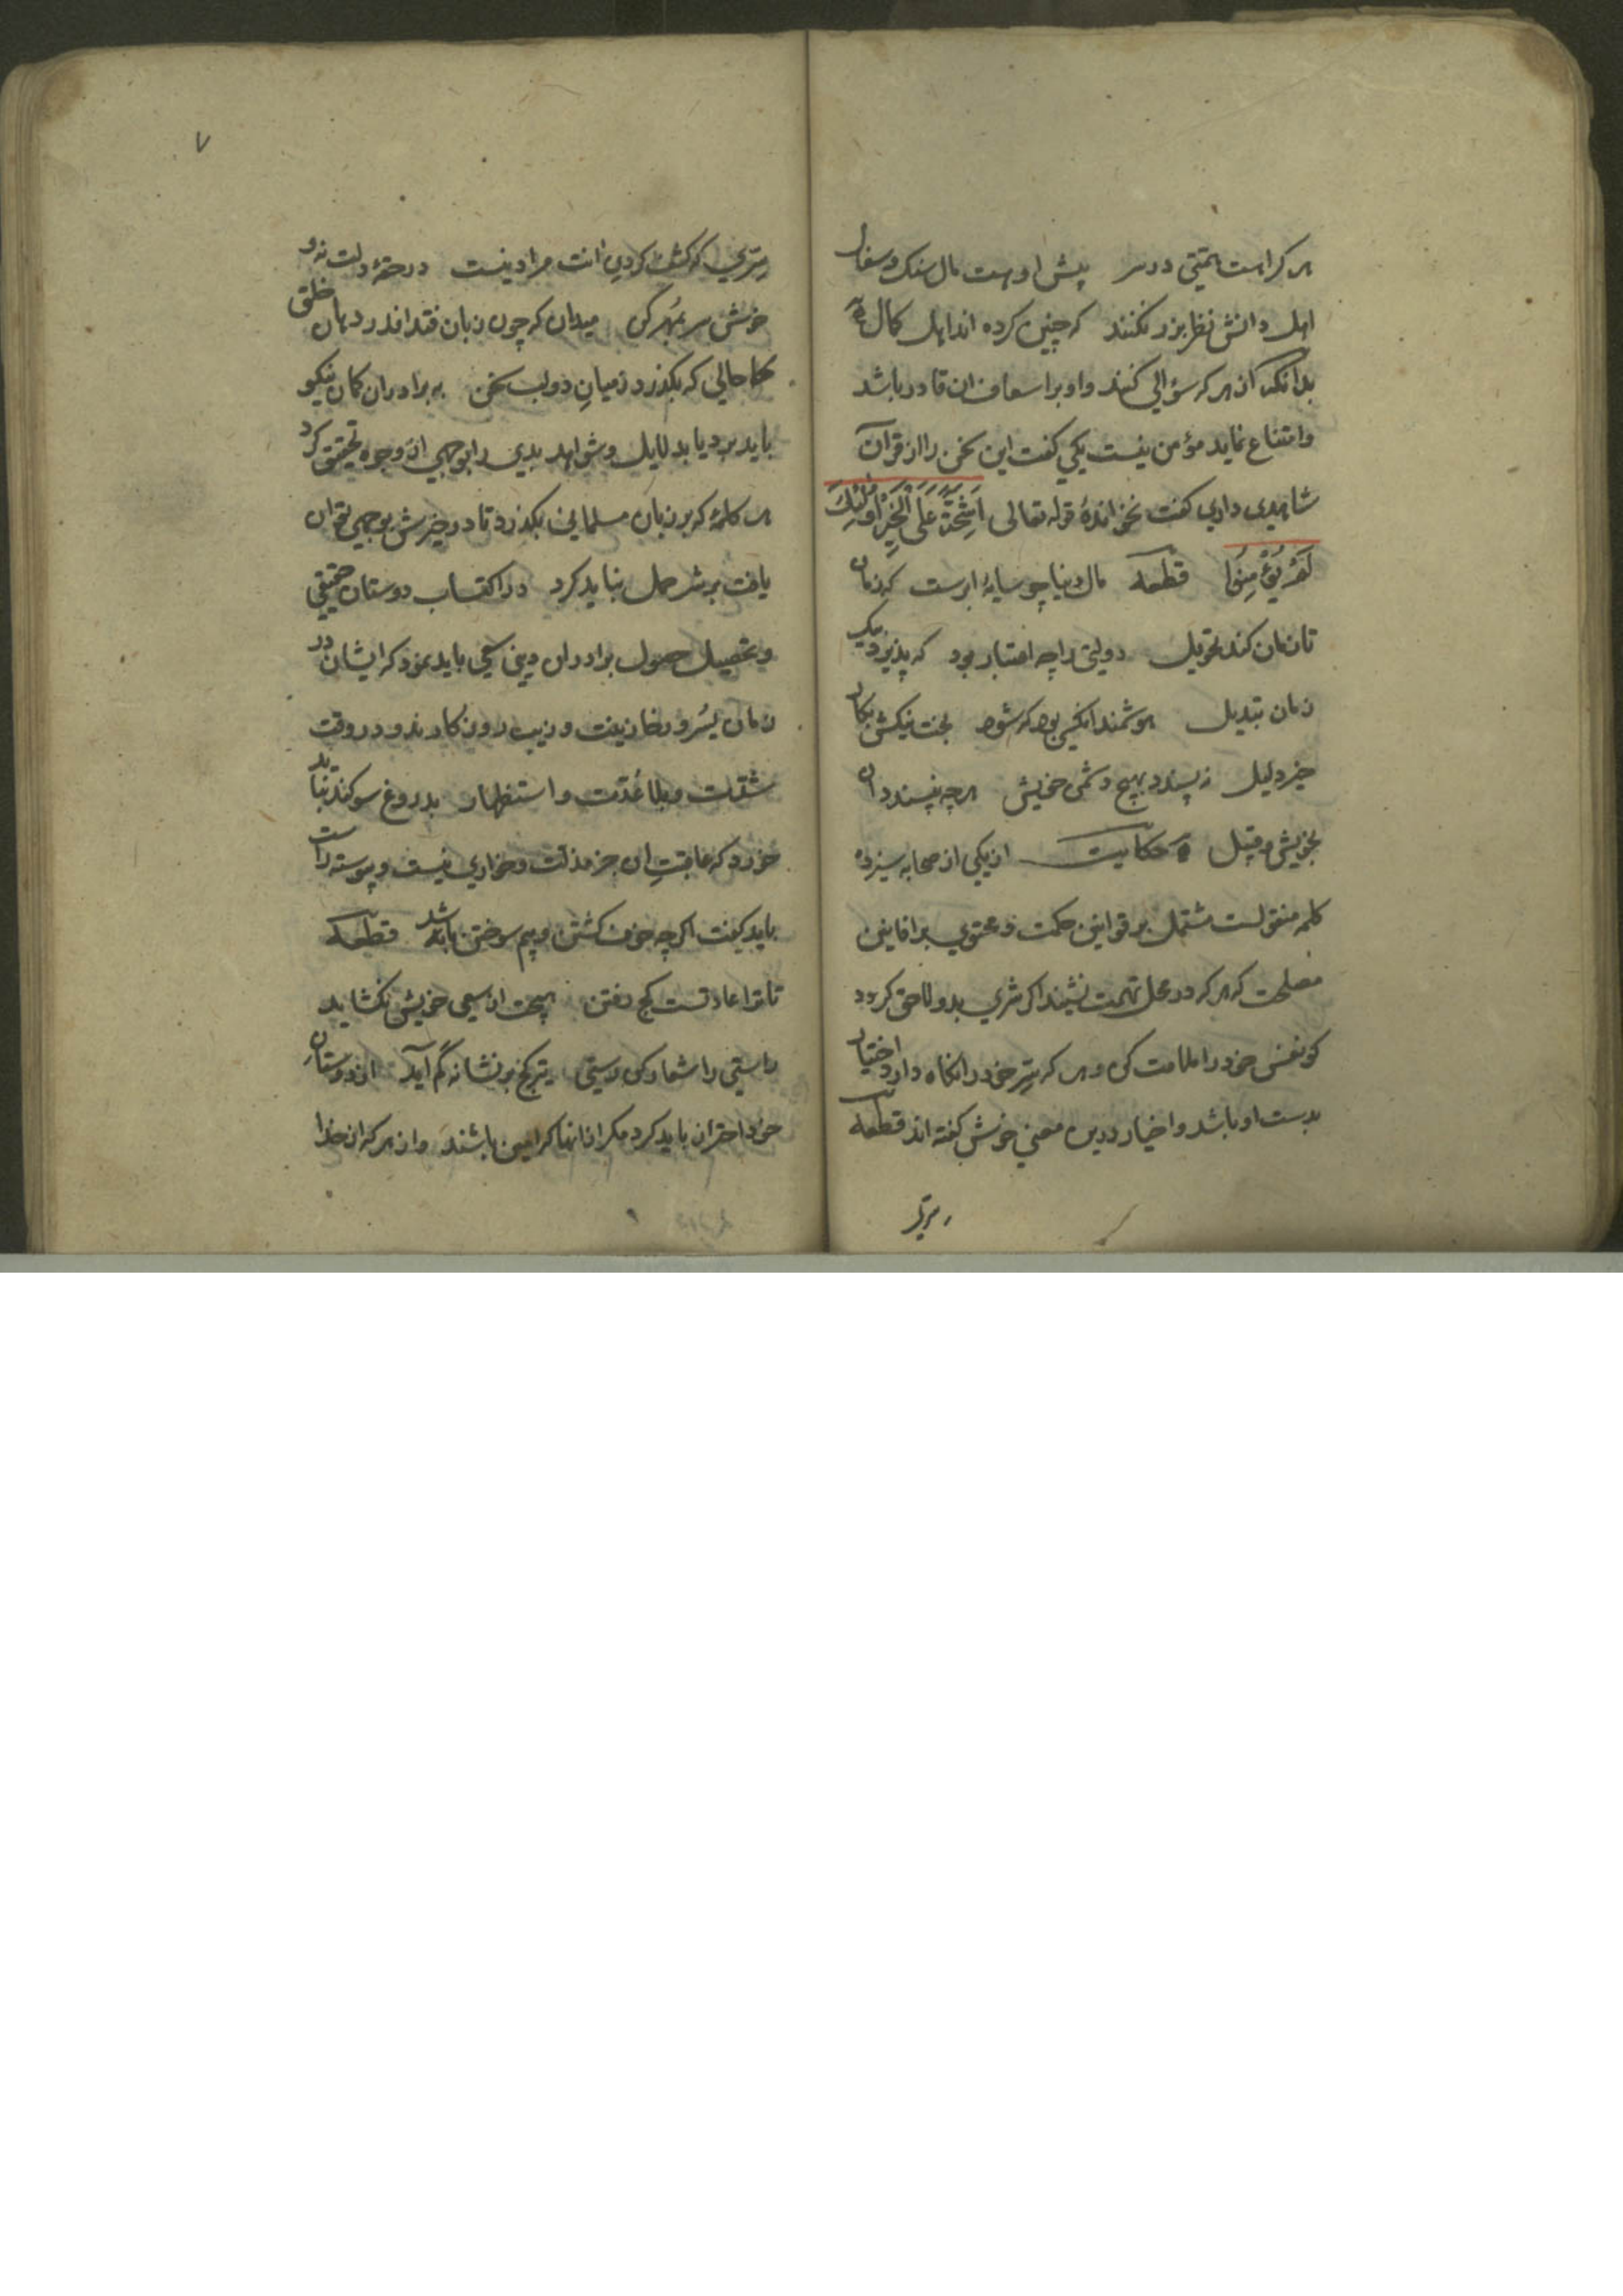 هر کراهست همتی در سر پیش او هست مال سنک و سفال
اهل دانش نظر بزر نکنند که چنین کرده اند اهل کمال
بدانکه از هر که سؤالی کنند و او بر اسعاف ان قادر باشد
و امتناع نماید مؤمن نیست یکی کفت این سخن را از قرآن
شاهدی داری کفت نخواندهٔ قوله تعالی اَشِحَّةً عَلَی الْخَیْرِ اُولٰئِكَ
لَمْ یُؤْمِنُوا قطعه مال دنیا چو سایهٔ ابرست که زمان
تا زمان کند تحویل دولتی را چه اعتبار بود که پذیرد بیک
زمان تبدیل هوشمند انکسی بود که شود بخت نیکش بکار
خیر دلیل نه پسندد بهیچ دشمن خویش هرچه نپسندد ان
بخویش و قبیل حکایت از یکی از صحابه سیزده
کلمه منقولست مشتمل بر قوانین حکمت و محتوی بر افانین
مصلحت که هر که در محل تهمت نشیند اکر شری بدو لاحق کردد
کو نفس خود را ملامت کن و هر که سِر خود را نکاه دارد اختیار
بدست او باشد و اخیار درین معنی خوش کفته اند قطعه
سِرّی که کشف کردن انت مراد نیست در حقهٔ دلت نه و
خوش سر بمُهر کن میدان که چون زبان فتد اندر دهان خلق
حالی که بکذرد ز میانِ دو لب سخن به برادران کمان نیکو
باید برد یا بدلایل و شواهد بدی را بوجهی از وجوه تحقیق کرد
هر کلمهٔ که بر زبان مسلمانی بکذرد تا در خیرش بوجهی توان
یافت بر شر حمل نباید کرد در اکتساب دوستان حقیقی
و تحصیل حصول برادران دینی سعی باید نمود که ایشان در
زمان یُسر و رخا زینت و زیب روزکارند و در وقت
شدّت و بلا عُدّت و استظهار بدروغ سوکند نباید
خورد که عاقبتِ ان جز مذلت و خواری نیست و پیوسته راست
باید کفت اکر چه خوف کشتن و بیم سوختن باشد قطعه
تا ترا عادتست کج رفتن هیچت از سعی خویش نکشاید
راستی را شعار کن رستی تیر کج بر نشانه کم آید از دوستان
خود احتراز باید کرد مکر از انها که امین باشند و از هر که از خدا